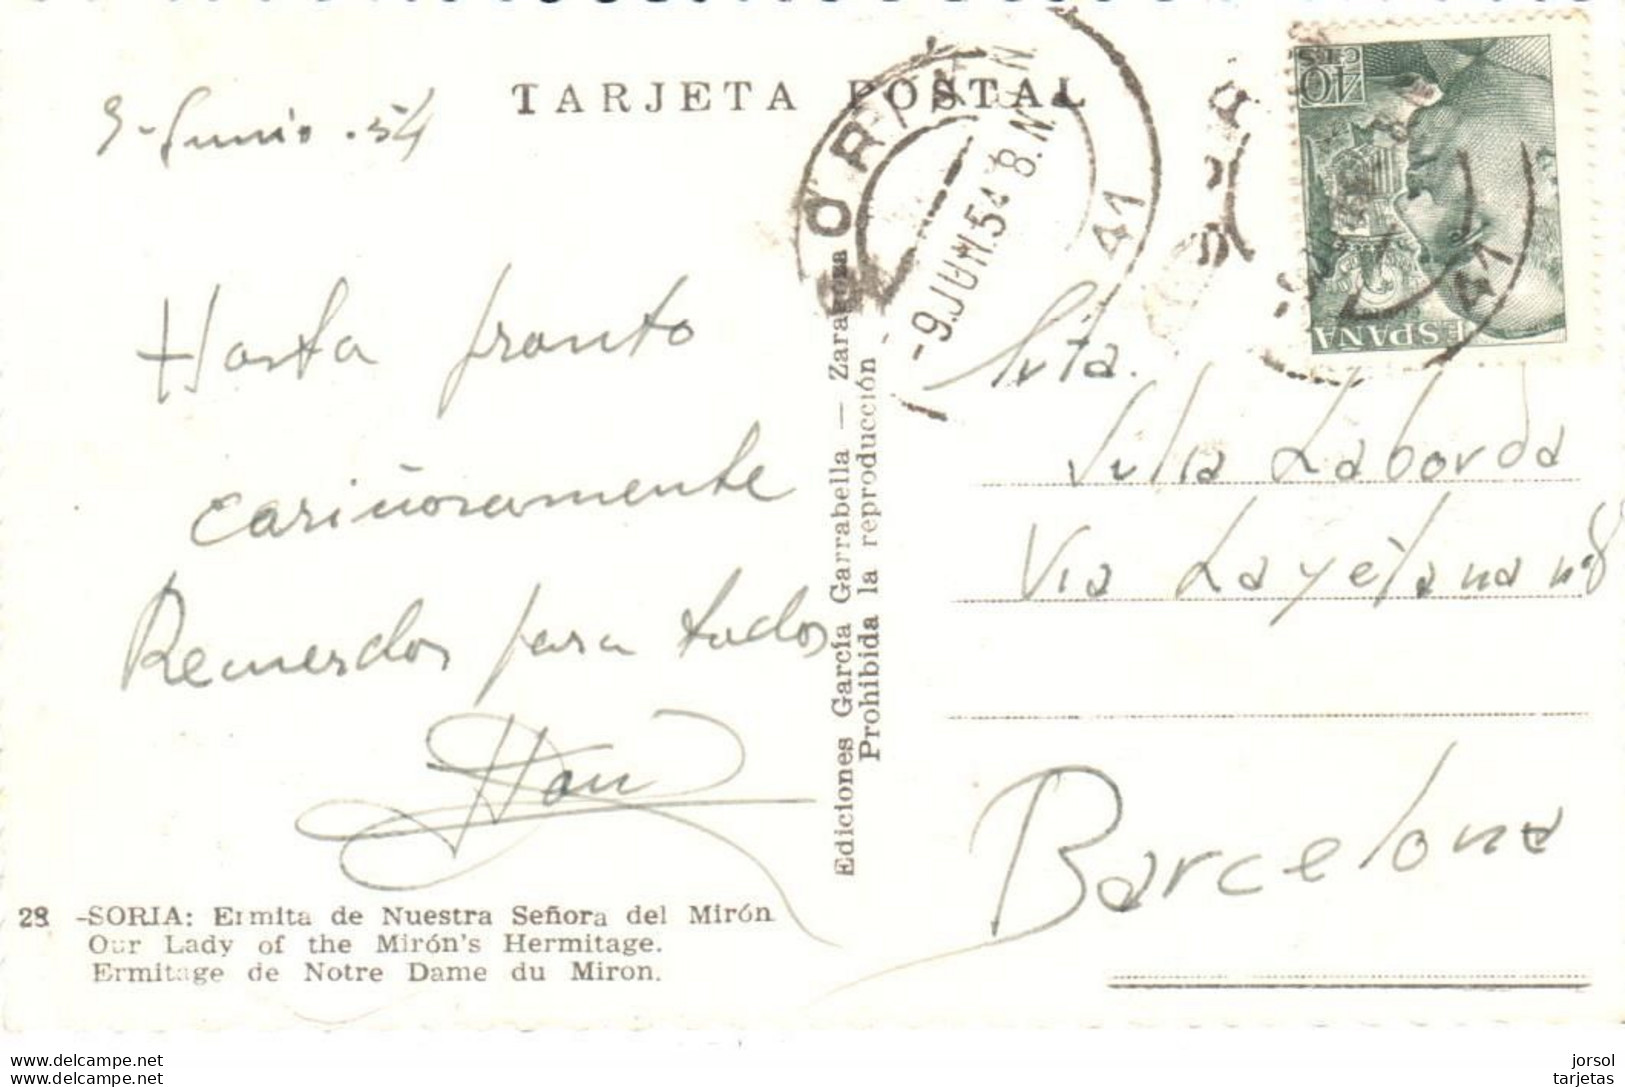 TARJETA POSTAL
9-Junio-54
Hasta pronto
cariñosamente
Recuerdos para todos
28 -SORIA: Ermita de Nuestra Señora del Mirón
Our Lady of the Mirón's Hermitage.
Ermitage de Notre Dame du Miron.
Ediciones García Garrabella — Zaragoza
Prohibida la reproducción
SORIA
-9.JUN.54 8.N
41
40 CTS
ESPAÑA
41
Srta.
Julia Laborda
Via Layetana nº 8
Barcelona
www.delcampe.net
www.delcampe.net
jorsol
tarjetas